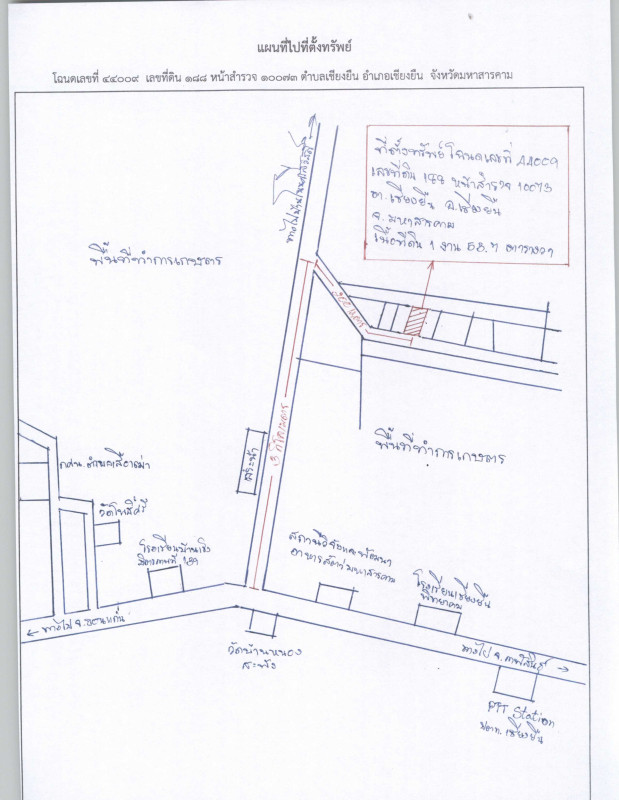 แผนที่ไปที่ตั้งทรัพย์
โฉนดเลขที่ ๔๔๐๐๙ เลขที่ดิน ๑๘๘ หน้าสำรวจ ๑๐๐๗๓ ตำบลเชียงยืน อำเภอเชียงยืน จังหวัดมหาสารคาม
ที่ตั้งทรัพย์ โฉนดเลขที่ 44009
เลขที่ดิน 188 หน้าสำรวจ 10073
ต.เชียงยืน อ.เชียงยืน
จ.มหาสารคาม
เนื้อที่ดิน 1 งาน 58.7 ตารางวา
ทางไปบ้าน
พื้นที่ทำการเกษตร
เมตร
3 กิโลเมตร
สระน้ำ
พื้นที่ทำการเกษตร
กศน.
วัดโพธิ์ศรี
โรงเรียนบ้าน
มิตรภาพที่
สถานีวิจัยและพัฒนา
อาหารสัตว์มหาสารคาม
โรงเรียนเชียงยืน
พิทยาคม
← ทางไป จ.ขอนแก่น
ทางไป จ.กาฬสินธุ์ →
วัดบ้านหนอง
สะพัง
PTT Station
ปตท. เชียงยืน